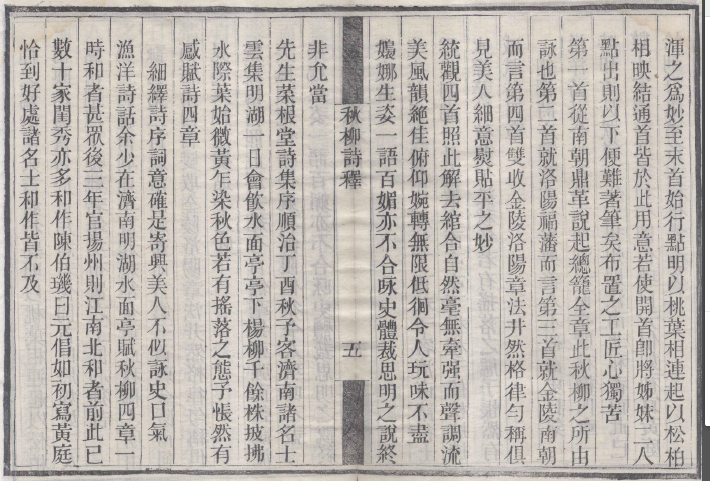 渾之爲妙至末首始行點明以桃葉相連起以松柏
相映結通首皆於此用意若使開首卽將姊妹二人
點出則以下便難著筆矣布置之工匠心獨苦
第一首從南朝鼎革說起總籠全章此秋柳之所由
詠也第二首就洛陽福藩而言第三首就金陵南朝
而言第四首雙收金陵洛陽章法井然格律勻稱俱
見美人細意熨貼平之妙
統觀四首照此解去綰合自然毫無牽强而聲調流
美風韻絶佳俯仰婉轉無限低徊令人玩味不盡
嬝娜生姿一語百媚亦不合咏史體裁思明之說終
非允當
秋柳詩釋
五
先生菜根堂詩集序順治丁酉秋予客濟南諸名士
雲集明湖一日會飲水面亭亭下楊柳千餘株披拂
水際葉始微黃乍染秋色若有搖落之態予悵然有
感賦詩四章
細繹詩序詞意確是寄興美人不似詠史口氣
漁洋詩話余少在濟南明湖水面亭賦秋柳四章一
時和者甚眾後三年官揚州則江南北和者前此已
數十家閨秀亦多和作陳伯璣曰元倡如初寫黃庭
恰到好處諸名士和作皆不及